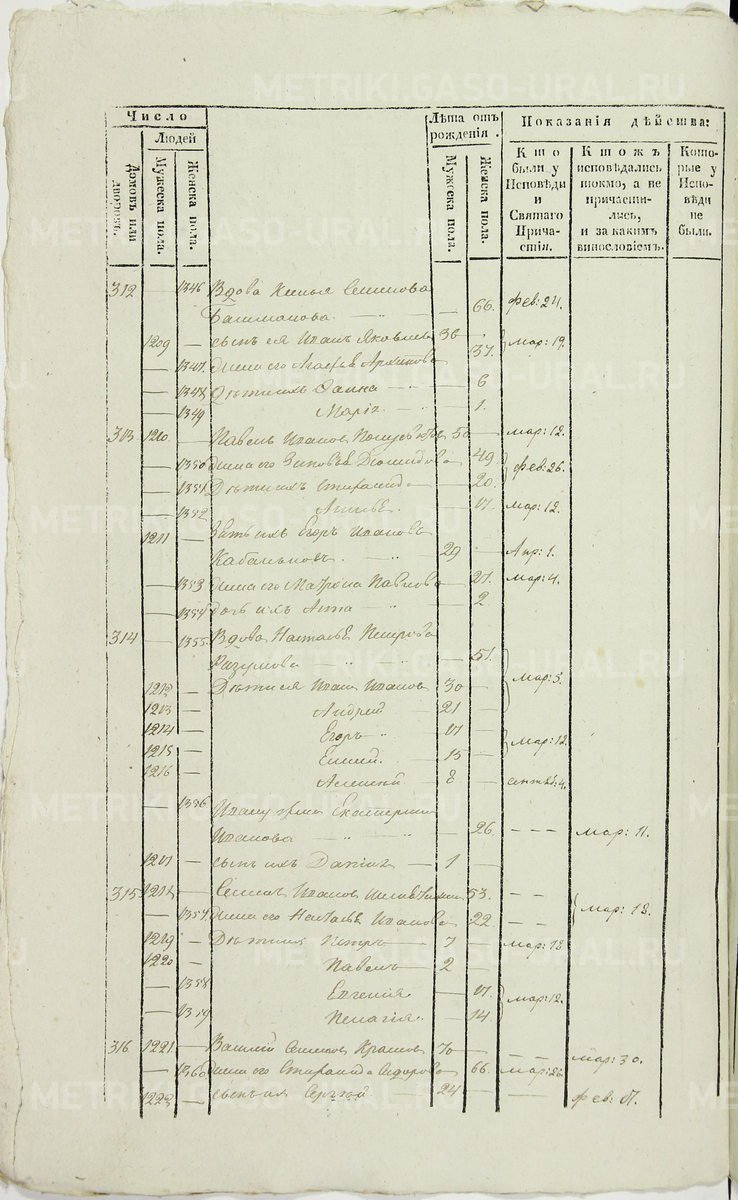 METRIKI.GASO-URAL.RU
Число
Людей
Домовъ или дворовъ.
Мужеска пола.
Женска пола.
Лѣта отъ рожденія.
Мужеска пола.
Женска пола.
Показанія дѣйства:
Кто были у Исповѣди и Святаго Причастія.
Ктожъ исповѣдались токмо, а не причастились, и за какимъ винословіемъ.
Которые у Исповѣди не были.
312 — 1346 Вдова Семенова
Башманова — 66. фев: 24.
1209 — сынъ ея Иванъ Яковлевъ 36 — мар: 19.
— 1347. жена его Агафья Архипова 37.
— 1348 Дѣти ихъ Фаина — 6
— 1349 Марія — 1.
313 1210. — Павелъ Ивановъ 50 — мар: 12.
— 1350 жена его Зиновья 49 фев: 26.
— 1351 Дѣти ихъ Стиранида — 20.
— 1352 — 17. мар: 12.
1211 — Зять ихъ Егоръ Ивановъ
29 — Апр: 1.
— 1353 жена его Матрона Павлова — 27. мар: 4.
— 1354 дочь ихъ Анна — 2.
314 — 1355. Вдова Наталья Петрова
— 51.
1212 — Дѣти ея Иванъ Ивановъ 30 — мар: 5.
1213 — Андрей — 21 —
1214 — Егоръ — 17 —
1215 — 15 — мар: 12.
1216 — Алексѣй — 8 — сентяб: 4.
— 1356 Ивану жена Екатерина
Иванова — 26. — — — мар: 11.
1217 — сынъ ихъ Даніилъ — 1 —
315 1218 — Ивановъ 53. — —
— 1357 жена его Наталья Иванова 22 — — мар: 18.
1219 — Дѣти ихъ Петръ — 7 — мар: 18.
1220 — Павелъ — 2 —
— 1358 Евгенія — 17. мар: 12.
— 1359 Пелагія — 14
316 1221. — Василій Семеновъ 70 — — — мар: 30.
— 1360 жена его Стиранида Сидорова 66. мар: 26.
1222 — сынъ ихъ Сергѣй — 24 — — — фев: 17.